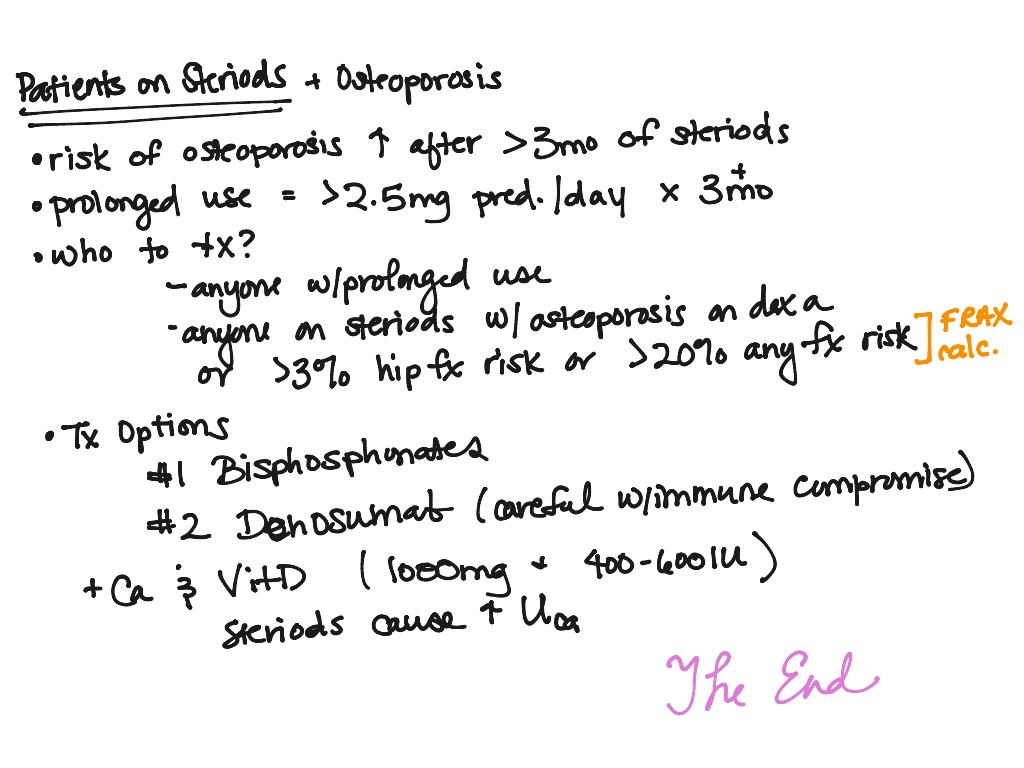 Patients on Steriods + Osteoporosis
• risk of osteoporosis ↑ after >3mo of steriods
• prolonged use = >2.5mg pred./day x 3+mo
• who to tx?
- anyone w/prolonged use
- anyone on steriods w/ osteoporosis on dexa
or >3% hip fx risk or >20% any fx risk ] FRAX calc.
• Tx Options
#1 Bisphosphonates
#2 Denosumab (careful w/immune compromise)
+ Ca & VitD (1000mg + 400-600IU)
steriods cause ↑ Uca
The End